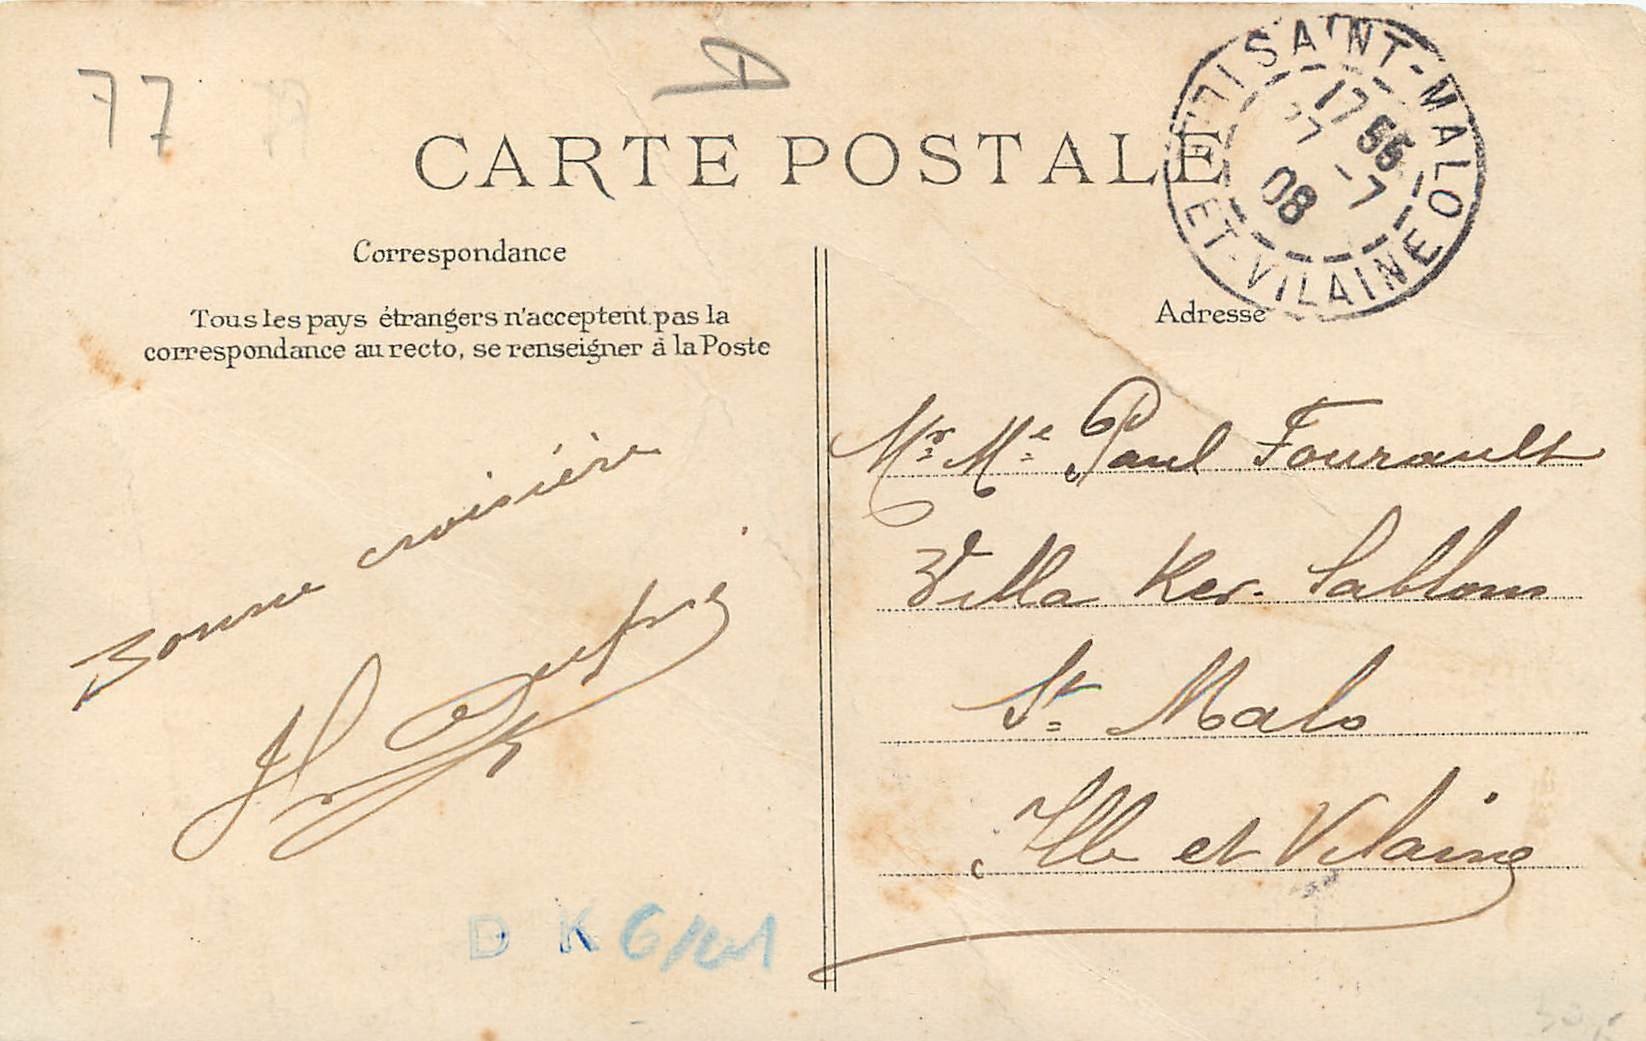 77
CARTE POSTALE
SAINT-MALO
ET-VILAINE
17 55
7 -7
08
Correspondance
Tous les pays étrangers n'acceptent pas la
correspondance au recto, se renseigner à la Poste
Adresse
Bonne croisière
Mr. Me. Paul Fourault
Villa Ker. Sablons
St. Malo
Ille et Vilaine
D K 6